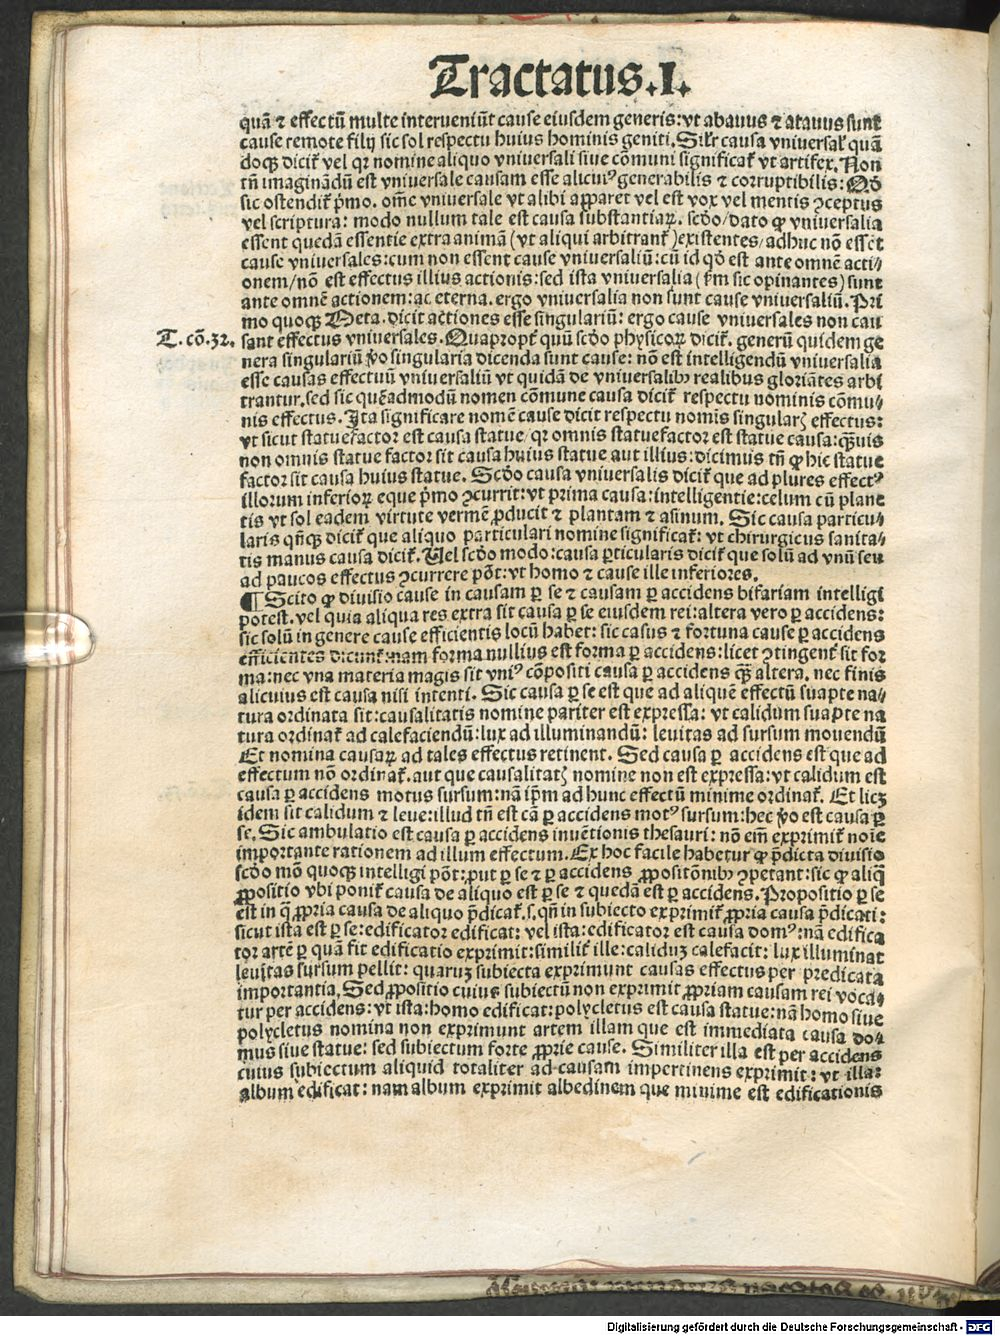 Tractatus.I.
quā ⁊ effectū multe interueniūt cause eiusdem generis: vt abauus ⁊ atauus sunt
cause remote filij sic sol respectu huius hominis geniti. Silr̄ causa vniuersal̓ quā
doq̄ꝫ dicit̄ vel qr nomine aliquo vniuersali siue cōmuni significat̄ vt artifex. Non
tn̄ imaginādū est vniuersale causam esse alicuiꝰ generabilis ⁊ corruptibilis: Qd̓
sic ostendit̄ p̄mo. om̄e vniuersale vt alibi apparet vel est vox vel mentis ꝯceptus
vel scriptura: modo nullum tale est causa substantiaꝝ. scd̓o/ dato ꝙ vniuersalia
essent quedā essentie extra animā (vt aliqui arbitrant̄) existentes/ adhuc nō essēt
cause vniuersales: cum non essent cause vniuersaliū: cū id qd̓ est ante omnē acti⸗
onem/ nō est effectus illius actionis: sed ista vniuersalia (km̄ sic opinantes) sunt
ante omnē actionem: ac eterna. ergo vniuersalia non sunt cause vniuersaliū. Pri
mo quoqꝫ Meta. dicit actiones esse singulariū: ergo cause vniuersales non cau
T. cō. 32. sant effectus vniuersales. Quapropt̄ quū scd̓o physicoꝝ dicit̄. generū quidem ge
nera singulariū v̓o singularia dicenda sunt cause: nō est intelligendū vniuersalia
esse causas effectuū vniuersaliū vt quidā de vniuersalibꝰ realibus gloriātes arbi
trantur. sed sic quēadmodū nomen cōmune causa dicit̄ respectu nominis cōmu⸗
nis effectus. Ita significare nomē cause dicit respectu nomīs singularꝭ effectus:
vt sicut statuefactor est causa statue/ qr omnis statuefactor est statue causa: q̄ꝫuis
non omnis statue factor sit causa huius statue aut illius: dicimus tn̄ ꝙ hic statue
factor sit causa huius statue. Scd̓o causa vniuersalis dicit̄ que ad plures effectꝰ
illorum inferioꝝ eque p̄mo ꝯcurrit: vt prima causa: intelligentie: celum cū plane
tis vt sol eadem virtute vermē ꝓducit ⁊ plantam ⁊ asinum. Sic causa particu⸗
laris qn̄qꝫ dicit̄ que aliquo particulari nomine significat̄: vt chirurgicus sanita⸗
tis manus causa dicit̄. Uel scd̓o modo: causa ꝑticularis dicit̄ que solū ad vnū seu
ad paucos effectus ꝯcurrere pōt: vt homo ⁊ cause ille inferiores.
¶ Scito ꝙ diuisio cause in causam ꝑ se ⁊ causam ꝑ accidens bifariam intelligi
potest. vel quia aliqua res extra sit causa ꝑ se eiusdem rei: altera vero ꝑ accidens:
sic solū in genere cause efficientis locū habet: sic casus ⁊ fortuna cause ꝑ accidens
efficientes dicunt̄: nam forma nullius est forma ꝑ accidens: licet ꝯtingent̄ sit for
ma: nec vna materia magis sit vniꝰ cōpositi causa ꝑ accidens q̄ꝫ altera. nec finis
alicuius est causa nisi intenti. Sic causa ꝑ se est que ad aliquē effectū suapte na⸗
tura ordinata sit: causalitatis nomine pariter est expressa: vt calidum suapte na
tura ordinat̄ ad calefaciendū: lux ad illuminandū: leuitas ad sursum mouendū
Et nomina causaꝝ ad tales effectus retinent. Sed causa ꝑ accidens est que ad
effectum nō ordinat̄. aut que causalitatꝭ nomine non est expressa: vt calidum est
causa ꝑ accidens motus sursum: nā ip̄m ad hunc effectū minime ordinat̄. Et licꝫ
idem sit calidum ⁊ leue: illud tn̄ est cā ꝑ accidens motꝰ sursum: hec v̓o est causa ꝑ
se. Sic ambulatio est causa ꝑ accidens inuētionis thesauri: nō em̄ exprimit̄ noīe
importante rationem ad illum effectum. Ex hoc facile habetur ꝙ p̄dicta diuisio
scd̓o mō quoqꝫ intelligi pōt: put ꝑ se ⁊ ꝑ accidens ꝓpositōnibꝰ ꝯpetant: sic ꝙ aliq̄
ꝓpositio vbi ponit̄ causa de aliquo est ꝑ se ⁊ quedā est ꝑ accidens. Propositio ꝑ se
est in q̄ ꝓpria causa de aliquo p̄dicat̄. s. qn̄ in subiecto exprimit̄ ꝓpria causa p̄dicati:
sicut ista est ꝑ se: edificator edificat: vel ista: edificator est causa domꝰ: nā edifica
tor artē ꝑ quā fit edificatio exprimit: similit̄ ille: caliduꝫ calefacit: lux illuminat
leuitas sursum pellit: quaruꝫ subiecta exprimunt causas effectus per predicata
importantia. Sed ꝓpositio cuius subiectū non exprimit ꝓpriam causam rei voca⸗
tur per accidens: vt ista: homo edificat: polycletus est causa statue: nā homo siue
polycletus nomina non exprimunt artem illam que est immediata causa do⸗
mus siue statue: sed subiectum forte ꝓprie cause. Similiter illa est per accidens
cuius subiectum aliquid totaliter ad causam impertinens exprimit: vt illa:
album edificat: nam album exprimit albedinem que minime est edificationis
Digitalisierung gefördert durch die Deutsche Forschungsgemeinschaft - DFG